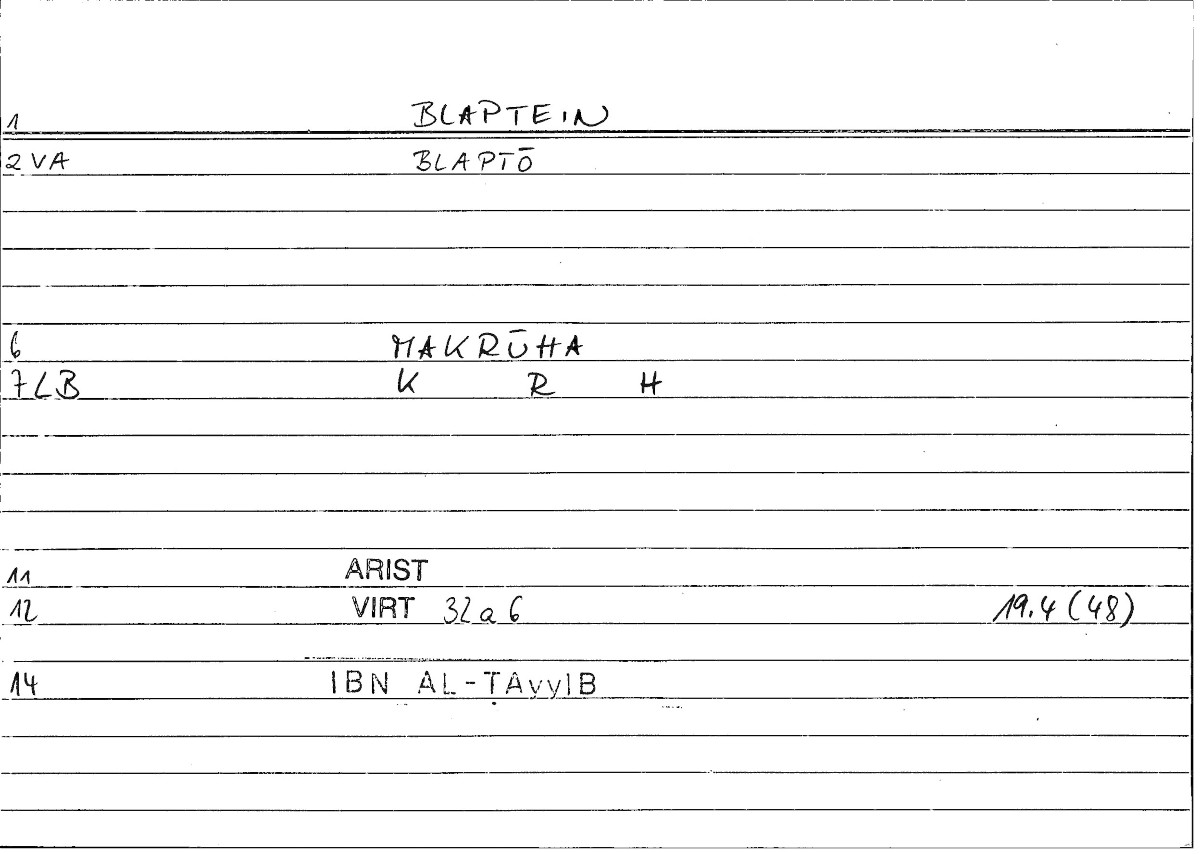 1 BLAPTEIN
2 VA BLAPTŌ
6 MAKRŪHA
7 LB K R H
11 ARIST
12 VIRT 32a6 19.4 (48)
14 IBN AL-ṬAyyIB